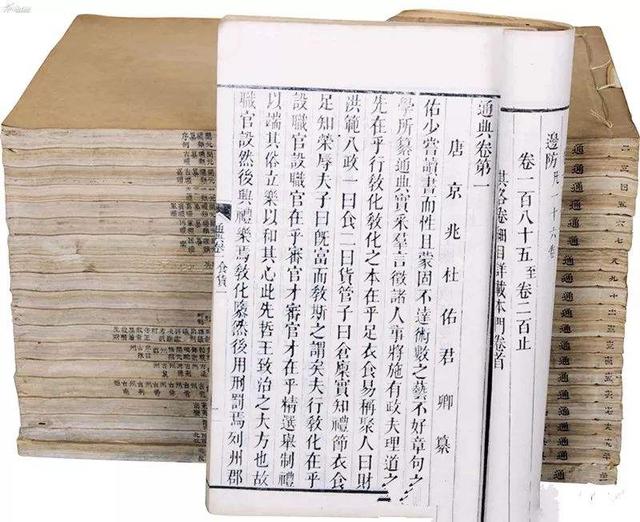 邊防
卷一百八十五至卷二百止
其各卷細目詳載本門卷首
通典卷第一
唐京兆杜佑君卿纂
佑少嘗讀書而性且蒙固不達術數之藝不好章句之
學所纂通典實采羣言徵諸人事將施有政夫理道之
先在乎行敎化敎化之本在乎足衣食易稱聚人曰財
洪範八政一曰食二曰貨管子曰倉廩實知禮節衣食
足知榮辱夫子曰旣富而敎斯之謂矣夫行敎化在乎
設職官設職官在乎審官才審官才在乎精選舉制禮
以端其俗立樂以和其心此先哲王致治之大方也故
職官設然後興禮樂焉敎化隳然後用刑罰焉列州郡
食貨一